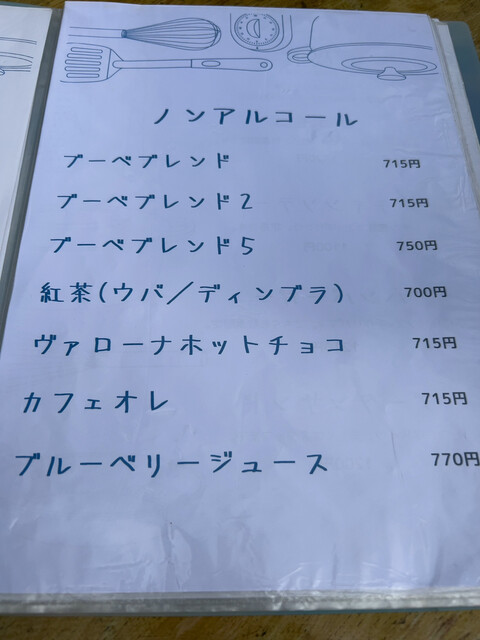 ノンアルコール
ブーベブレンド 715円
ブーベブレンド2 715円
ブーベブレンド5 750円
紅茶(ウバ/ディンブラ) 700円
ヴァローナホットチョコ 715円
カフェオレ 715円
ブルーベリージュース 770円